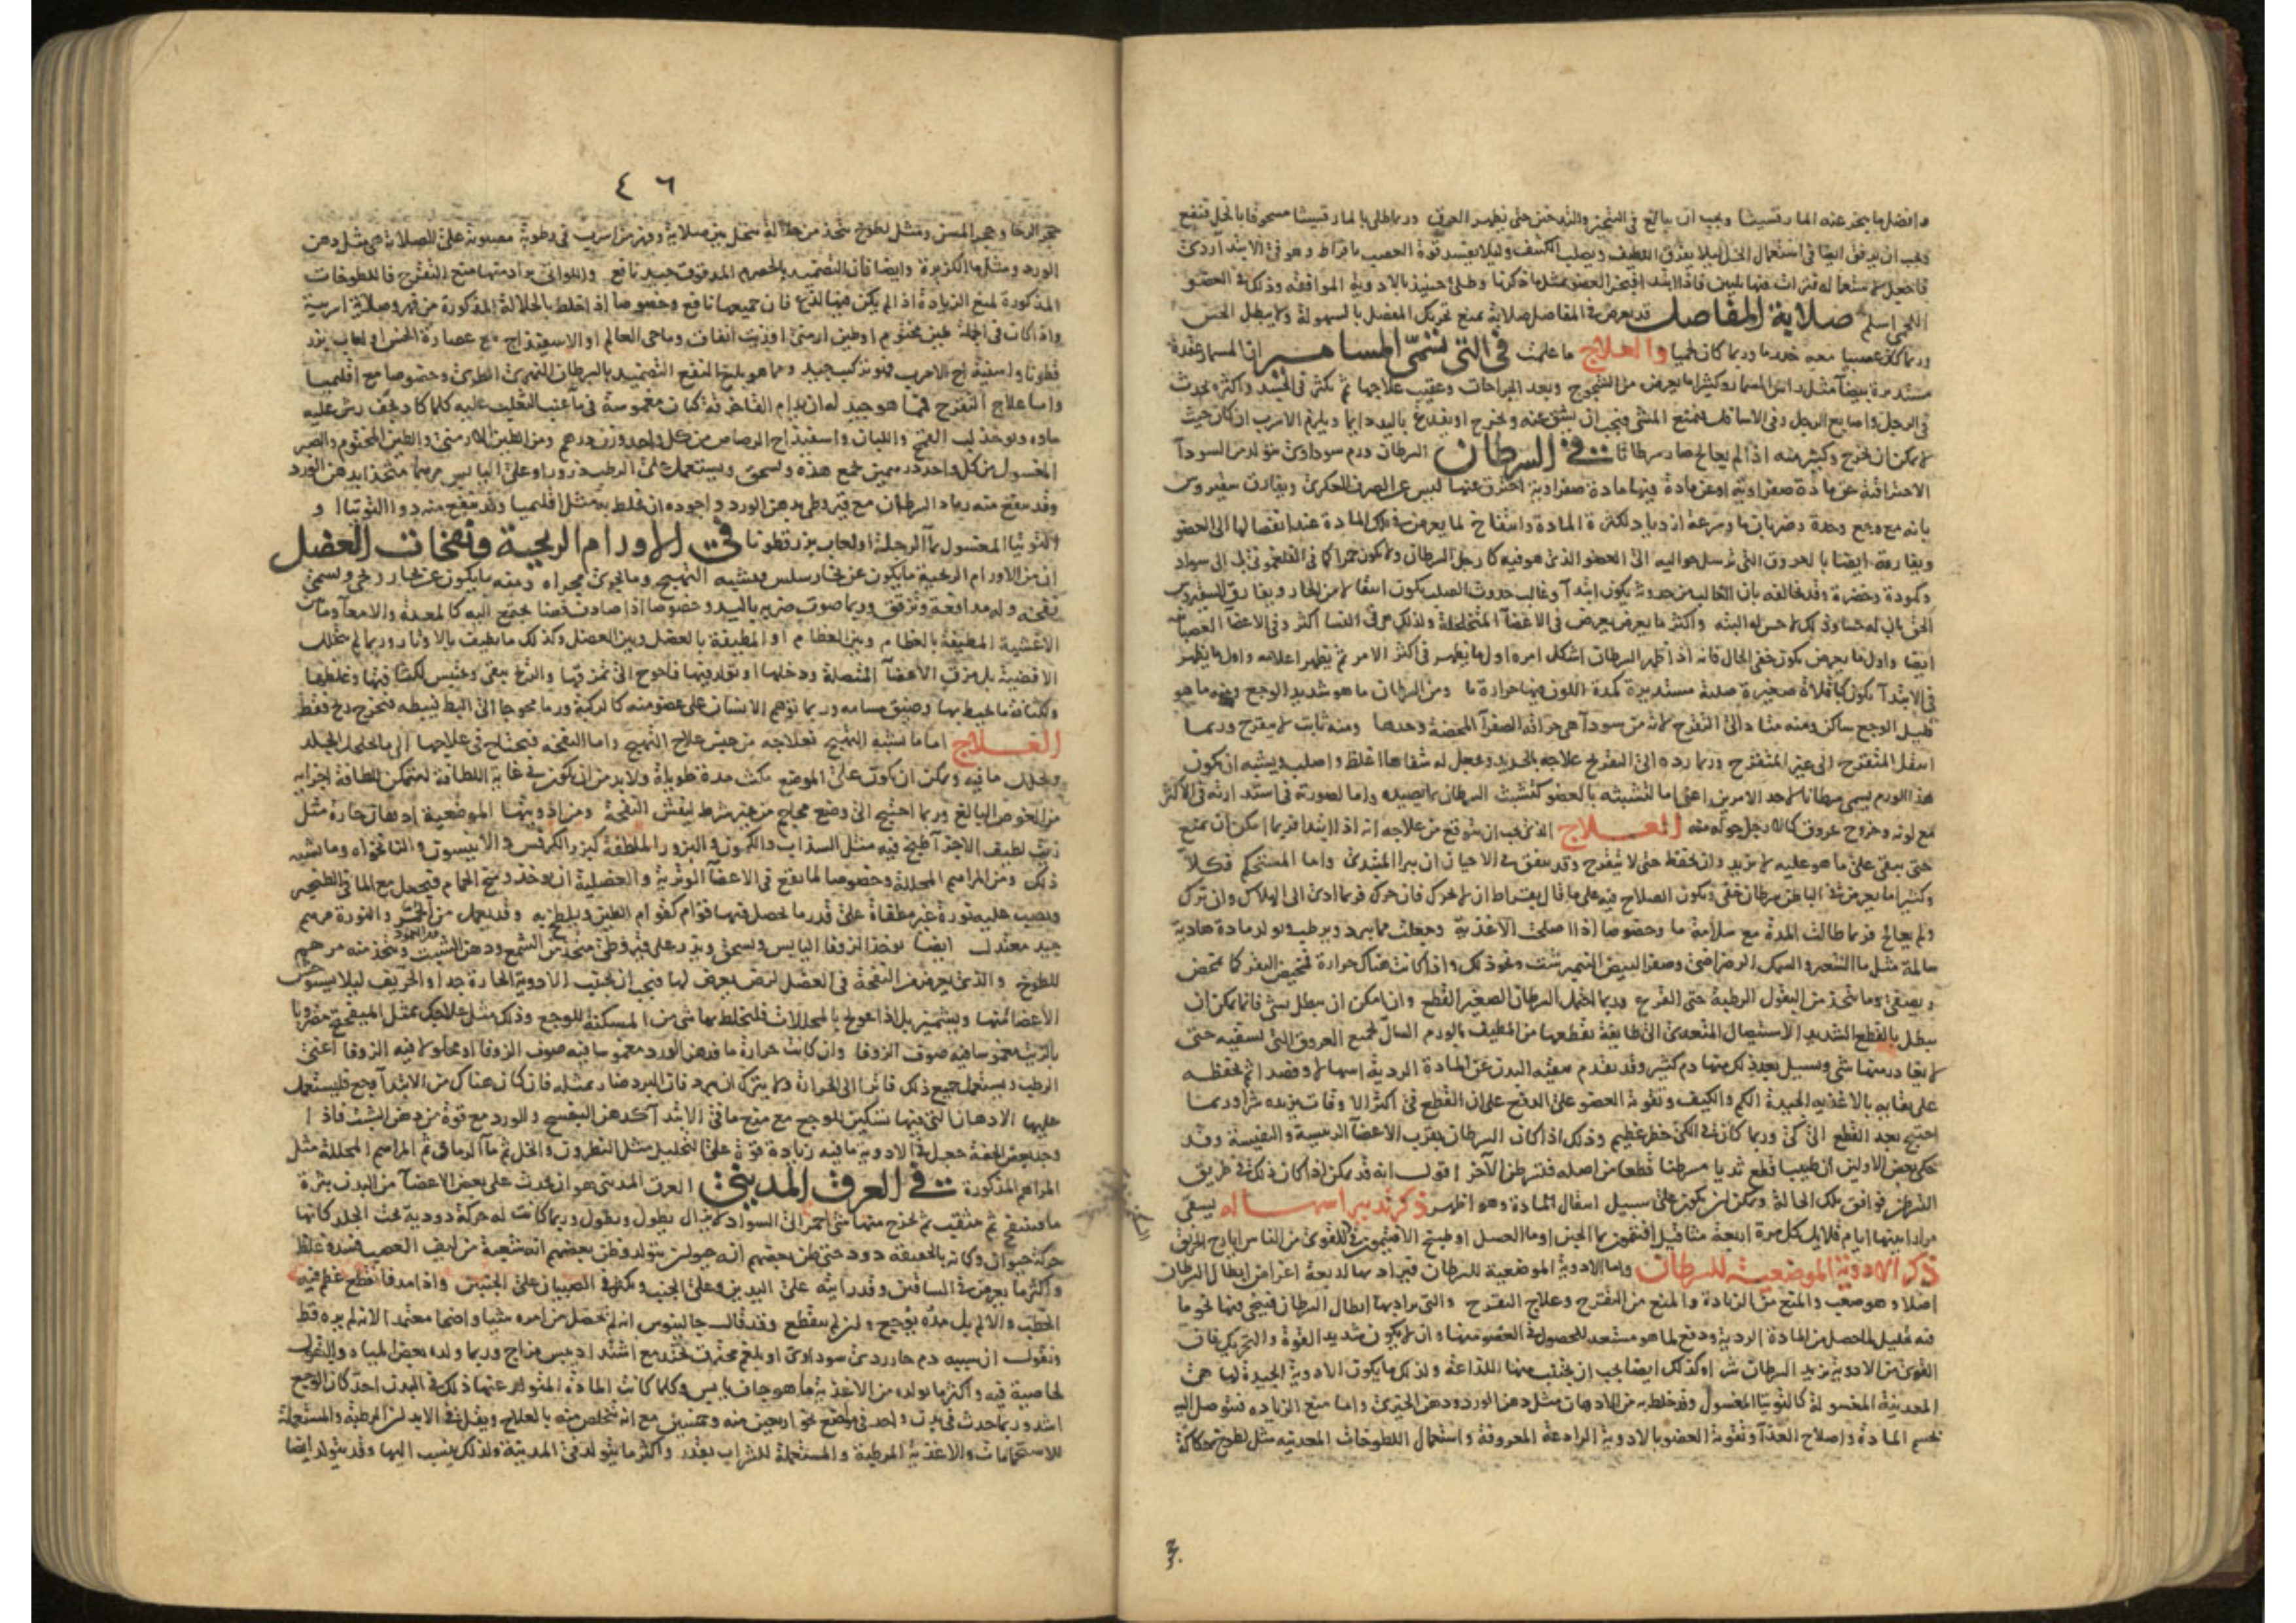 وافضل ما يبخر عنه المارقشيشا ويجب ان يبالغ في التبخير والتدخين حتى يظهر العرق وربما طلى بالمارقشيشا مسحوقا بالخل فينفع
ويجب ان يرفق ايضا في استعمال الخل ليلا يفرق اللطيف ويصلب الكثيف وليلا يفسد قوة العصب بافراط وهو في الابتدا اردى
فاجعل استعماله فترات فيها تليين فاذا ابتدا العضو مثل ما ذكرنا وطلى حينيذ بالادوية الموافقة وذلك في العضو
اللحمي اسلم صلابة المفاصل قد يعرض في المفاصل صلابة تمنع تحريك المفصل بالسهولة ولا يبطل الحس
وربما كان عصبيا معه خدر ما وربما كان لحميا والعلاج ما علمت في التي تسمى المسامير ان المسمار عقدة
مستديرة بيضا مثل راس المسمار وكثيرا ما يعرض من الشجوج وبعد الجراحات وعقيب علاجها ثم تكثر في الجسد واكثره يحدث
في الرجل واصابع الرجل وفي الاسافل فيمنع المشي فيجب ان يشق عنه ويخرج او يفدغ باليد دايما ويلزم الاسرب ان كان حيث
لا يمكن ان يخرج وكثير منه اذا لم يعالج صار سرطانا في السرطان السرطان ورم سوداوي تولده من السودا
الاحتراقية عن مادة صفراوية او عن مادة فيها مادة صفراوية احترق عنها ليس عن الصرف العكري ويفارق سقيروس
بانه مع وجع وحدة وضربان ما وسرعة ازدياد لكثرة المادة وانتفاخ لما يعرض في تلك المادة عند انفصالها الى العضو
ويفارقه ايضا بالعروق التي ترسل حواليه الى العضو الذي هو فيه كارجل السرطان ولا يكون حمرا كما في الفلغموني بل الى سواد
وكمودة وخضرة وقد يخالفه بان الغالب من حدوثه يكون ابتدا وغالب حدوث الصلب يكون انتقالا من الحار ويفارق السقيروس
الحق بان له حسا وذلك لا حس له البتة واكثر ما يعرض يعرض في الاعضا المتخلخلة ولذلك هو في النسا اكثر وفي الاعضا العصبانية
ايضا واول ما يعرض يكون خفي الحال فانه اذا ظهر السرطان اشكل امره اول ما يظهر في اكثر الامر ثم تظهر اعلامه واول ما يظهر
في الابتدا يكون كباقلاة صغيرة صلبة مستديرة كمدة اللون فيها حرارة ما ومن السرطان ما هو شديد الوجع ومنه ما هو
قليل الوجع ساكن ومنه متادى الى التقرح لانه من سودا هو حراقة الصفرا المحضة وحدها ومنه ثابت لا يتقرح وربما
انتقل المتقرح الى غير المتقرح وربما رده الى التقرح علاجه بالحديد وجعل له شفاها اغلظ واصلب ويشبه ان يكون
هذا الورم يسمى سرطانا لاحد الامرين اعنى اما لتشبثه بالعضو كتشبث السرطان بما يصيده واما لصورته في استدارته في الاكثر
مع لونه وخروج عروق كالارجل حوله منه العلاج الذي يجب ان يتوقع من علاجه انه اذا ابتدا فربما امكن ان يمنع
حتى يبقى على ما هو عليه لا يزيد وان يحفظ حتى لا يتقرح وقد يتفق في الاحيان ان يبرا المبتدى واما المستحكم فكلا
وكثيرا ما يعرض في الباطن سرطان خفي ويكون الصلاح فيه على ما قال بقراط ان لا يحرك فان حرك فربما ادى الى الهلاك وان ترك
ولم يعالج فربما طالت المدة مع سلامة ما وخصوصا اذا اصلحت الاغذية وجعلت مما يبرد ويرطب ويولد مادة هادية
سالمة مثل ما الشعير والسمك الرضراضي وصفر البيض النيمبرشت ونحو ذلك واذا كانت هناك حرارة فمخيض البقر كما يمخض
ويصفى وما يتخذ من البقول الرطبة حتى القرع وربما احتمل السرطان الصغير القطع وان امكن ان يبطل بشي فانما يمكن ان
يبطل بالقطع الشديد الاستيصال المتعدي الى طايفة يقطعها من المطيف بالورم السال لجميع العروق التي تسقيه حتى
لا يغادر منها شي ويسيل بعد ذلك منها دم كثير وقد تقدم بنقية البدن عن المادة الردية اسهالا وفصدا ثم يحفظه
على نقايه بالاغذية الجيدة الكم والكيف وتقوية العضو على الدفع على ان القطع في اكثر الاوقات يزيده شرا وربما
احتيج بعد القطع الى كي وربما كان في الكي خطر عظيم وذلك اذا كان السرطان بقرب الاعضا الرييسة والنفيسة وقد
حكى بعض الاولين ان طبيبا قطع ثديا مسرطنا قطعا من اصله فتسرطن الآخر اقول انه قد يمكن اذا كان ذلك في طريق
التسرطن فوافق تلك الحالة ويمكن ان يكون على سبيل انتقال المادة وهو اظهر ذكر تدبير اسهاله يسقى
مرارا بينها ايام قلايل كل مرة اربعة مثاقيل افتيمون بما الجبن او ما العسل او طبيخ الافتيمون وللقوى من الناس ايارج الخربق
ذكر الادوية الموضعية للسرطان واما الادوية الموضعية للسرطان فيراد بها اربعة اغراض ابطال السرطان
اصلا وهو صعب والمنع من الزيادة والمنع من التقرح وعلاج التقرح والتي يراد بها ابطال السرطان فينحى فيها نحو ما
فيه تحليل لما حصل من المادة الردية ودفع لما هو مستعد للحصول في العضو منها وان لا يكون شديد القوة والتحريك فان
القوى من الادوية يزيد السرطان شرا وكذلك ايضا يجب ان يجتنب منها اللذاعة ولذلك ما يكون الادوية الجيدة لها هي
المعدنية المغسولة كالتوتيا المغسول وقد خلط به من الادهان مثل دهن الورد ودهن الخيري واما منع الزيادة فيتوصل اليه
بحسم المادة واصلاح الغذا وتقوية العضو بالادوية الرادعة المعروفة واستعمال اللطوخات المعدنية مثل لطوخ حكاكة
٤٦
حجر الرحا وحجر المسن ومثل لطوخ يتخذ من حلالة تنحل بين صلاية وفهر من اسرب في رطوبة مصبوبة على الصلاية هي مثل دهن
الورد ومثل ما الكزبرة وايضا فان التضميد بالحصرم المدقوق جيد نافع واللواتي يراد منها منع التقرح فاللطوخات
المذكورة لمنع الزيادة اذا لم يكن فيها لذع فان جميعها نافع وخصوصا اذا خلط بالحلالة المذكورة من فهر وصلاية اسربية
واذا كان في الجملة طين مختوم او طين ارمني او زيت انفاق وما حي العالم او الاسفيذاج مع عصارة الخس او لعاب بزر
قطونا واسفيذاج الاسرب فهو تركيب جيد ومما هو بليغ النفع التضميد بالسرطان النهري الطري وخصوصا مع اقليميا
واما علاج التقرح فمما هو جيد له ان يدام القا خرقة كتان مغموسة في ما عنب الثعلب عليه كلما كاد يجف رش عليه
ماه ويوخذ لب القمح واللبان واسفيذاج الرصاص من كل واحد وزن درهم ومن الطين الارمني والطين المختوم والصبر
المغسول من كل واحد درهمين تجمع هذه وتسحق ويستعمل على الرطب ذرورا وعلى اليابس مرهما متخذا بدهن الورد
وقد ينفع منه رماد السرطان مع قيروطي بدهن الورد واجوده ان يخلط به مثل اقليميا وقد ينفع منه دوا التوتيا او
التوتيا المغسول بما الرجلة او لعاب بزر قطونا في الاورام الريحية ونفخات العضل
ان من الاورام الريحية ما يكون عن بخار سلس ويشبه التهيج وما يجري مجراه ومنه ما يكون عن بخار ريحي ويسمى
نفخة وله مدافعة وتزقق وربما صوت ضربه باليد وخصوصا اذا صادف فضا يجتمع اليه كالمعدة والامعا وما بين
الاغشية المطيفة بالعظام وبين العظام او المطيفة بالعضل وبين العضل وكذلك ما يطيف بالاوتار وربما لم يتخلل
الافضية بل مزق الاعضا المتصلة ودخلها او تولد فيها فاحوج الى تمزقها والريح يبقى ويحتبس لكثافتها وغلظها
وكثافة ما يحيط بها وضيق مسامه وربما توهم الانسان على عضو منه كالركبة ورما محوجا الى البط فيبطه فتخرج ريح فقط
العلاج اما ما يشبه التهيج فعلاجه من جنس علاج التهيج واما النفخة فتحتاج في علاجها الى ما يخلخل الجلد
ويحلل ما فيه ويمكن ان يكون على الموضع مكث مدة طويلة ولا بد من ان يكون في غاية اللطافة ليتمكن للطافة اجزايه
من الغوص البالغ وربما احتيج الى وضع محاجم من غير شرط ليفش النفخة ومن ادويتها الموضعية ادهان حارة مثل
زيت لطيف الاجزا طبخ فيه مثل السذاب والكمون والبزور الملطفة كبزر الكرفس والانيسون والنانخواه وما يشبه
ذلك ومن المراهم المحللة وخصوصا لما يقع في الاعضا الوترية والعضلية ان يوخذ وسخ الحمام فيجعل مع الما في الطنجير
ويصب عليه نورة غير مطفاة على قدر ما يحصل فيها قوام كقوام الطين ويلطخ به وقد يعمل من الخمر والنورة مرهم
جيد معتدل ايضا يوخذ الزوفا اليابس ويسحق ويذر على قيروطي متخذ من الشمع ودهن الشبت ويتخذ منه مرهم
للطوخ والذي يعرض من النفخة في العضل لرض يعرض لها فيجب ان يجتنب الادوية الحارة جدا والحريف ليلا يستوحش
الاعضا منها ويشميز بل اذا عولج بالمحللات فليخلط بها شي من المسكنة للوجع وذلك مثل علاجك بمثل الميبختج مضروبا
بالزيت مغموسا فيه صوف الزوفا وان كانت حرارة ما فدهن الورد مغموسا فيه صوف الزوفا او محلولا فيه الزوفا اعني
الرطب ويستعمل جميع ذلك فاترا الى الحرارة ولا يترك ان يبرد فان البرد ضار بمثله فان كان هناك من الابتدا وجع فليستعمل
عليها الادهان التي فيها تسكين للوجع مع منع ما في الابتدا كدهن البنفسج والورد مع قوة من دهن الشبت فاذا
وجد بعض الخفة جعل في الادوية ما فيه زيادة قوة على التحليل مثل النطرون والخل ثم ما الرماد ثم المراهم المحللة مثل
المراهم المذكورة في العرق المديني العرق المديني هو ان يحدث على بعض الاعضا من البدن بثرة
ما فينتفخ ثم يتنفط ثم يتثقب ثم يخرج منها شي احمر الى السواد لا يزال يطول ويطول وربما كانت له حركة دودية تحت الجلد كانها
حركة حيوان وكانه بالحقيقة دود حتى ظن بعضهم انه حيوان يتولد وظن بعضهم انه شعبة من ليف العصب فسد وغلظ
واكثر ما يعرض في الساقين وقد رايته على اليدين وعلى الجنب ويكثر في الصبيان على الجنبين واذا مد فانقطع عظم فيه
الخطب والالم بل مده يوجع وان لم ينقطع وقد قال جالينوس انه لم يتحصل من امره شيا واضحا معتمدا لانه لم يره قط
ونقول ان سببه دم حار ردي سوداوي او بلغم محترق يحتد مع اشتداد يبس مزاج وربما ولده بعض المياه والبقول
لخاصية فيه واكثر ما يولده من الاغذية ما هو جاف يابس وكلما كانت المادة المتولد عنها ذلك في البدن احد كان الوجع
اشد وربما حدث في بدن واحد في مواضع نحو اربعين منه وخمسين مع انه يتخلص منه بالعلاج ويقل في الابدان الرطبة والمستعملة
للاستحمامات والاغذية المرطبة والمستعملة للشراب بقدر واكثر ما يتولد في المدينة ولذلك ينسب اليها وقد يتولد ايضا